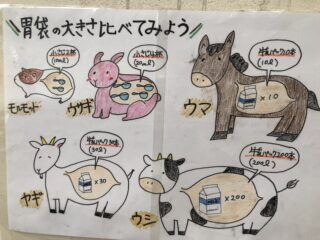 胃袋の大きさ比べてみよう
小さじ2杯
(10ml)
モルモット
小さじ4杯
(20ml)
ウサギ
牛乳パック10本
(10ℓ)
×10
ウマ
牛乳パック30本
(30ℓ)
×30
ヤギ
牛乳パック200本
(200ℓ)
×200
ウシ